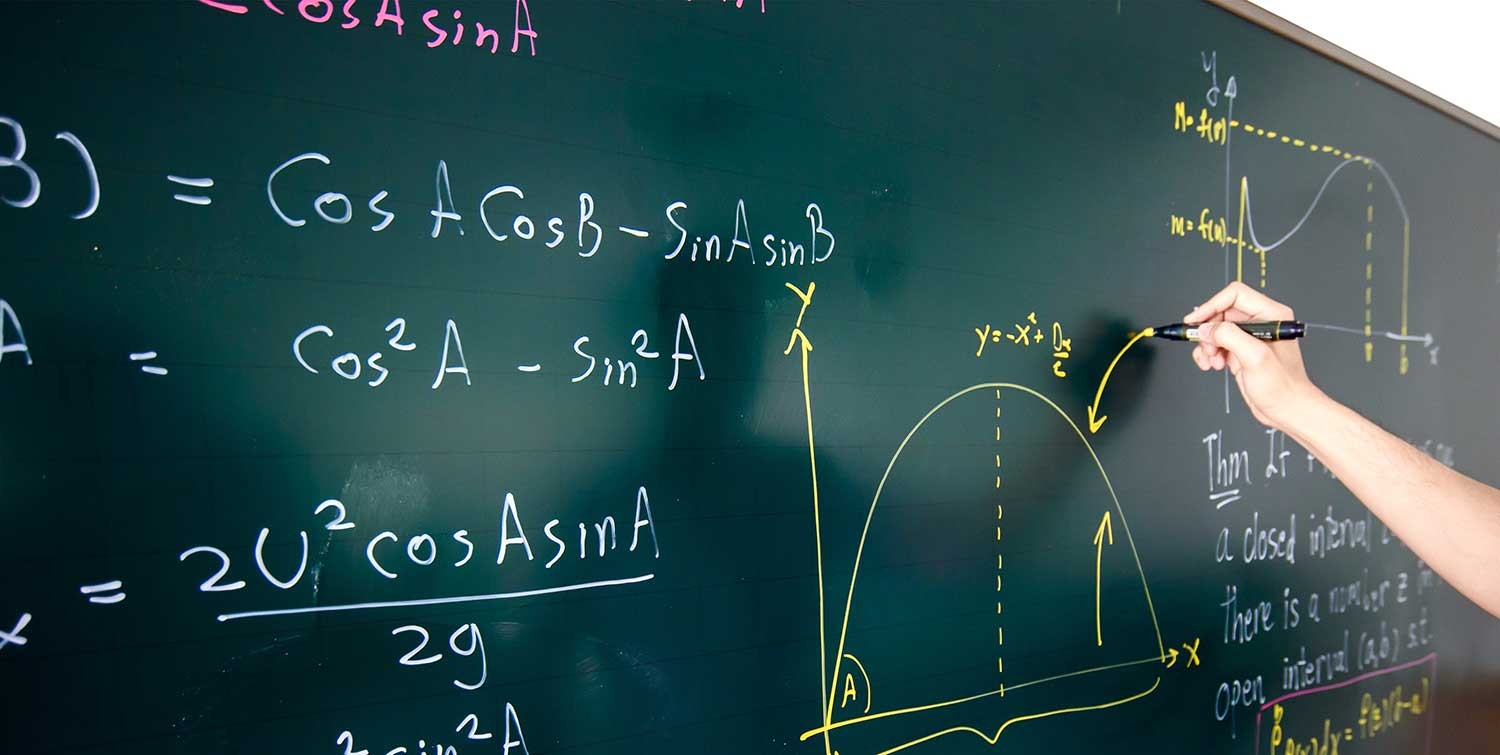 cosAsinA
B) = CosACosB - SinAsinB
A = Cos²A - Sin²A
x = 2U²cosAsinA
2g
² sin²A
Y
y=-x²+
A
X
y
M=
m=
x
Thm If
a closed interval
there is a number z in
open interval (a,b) s.t.